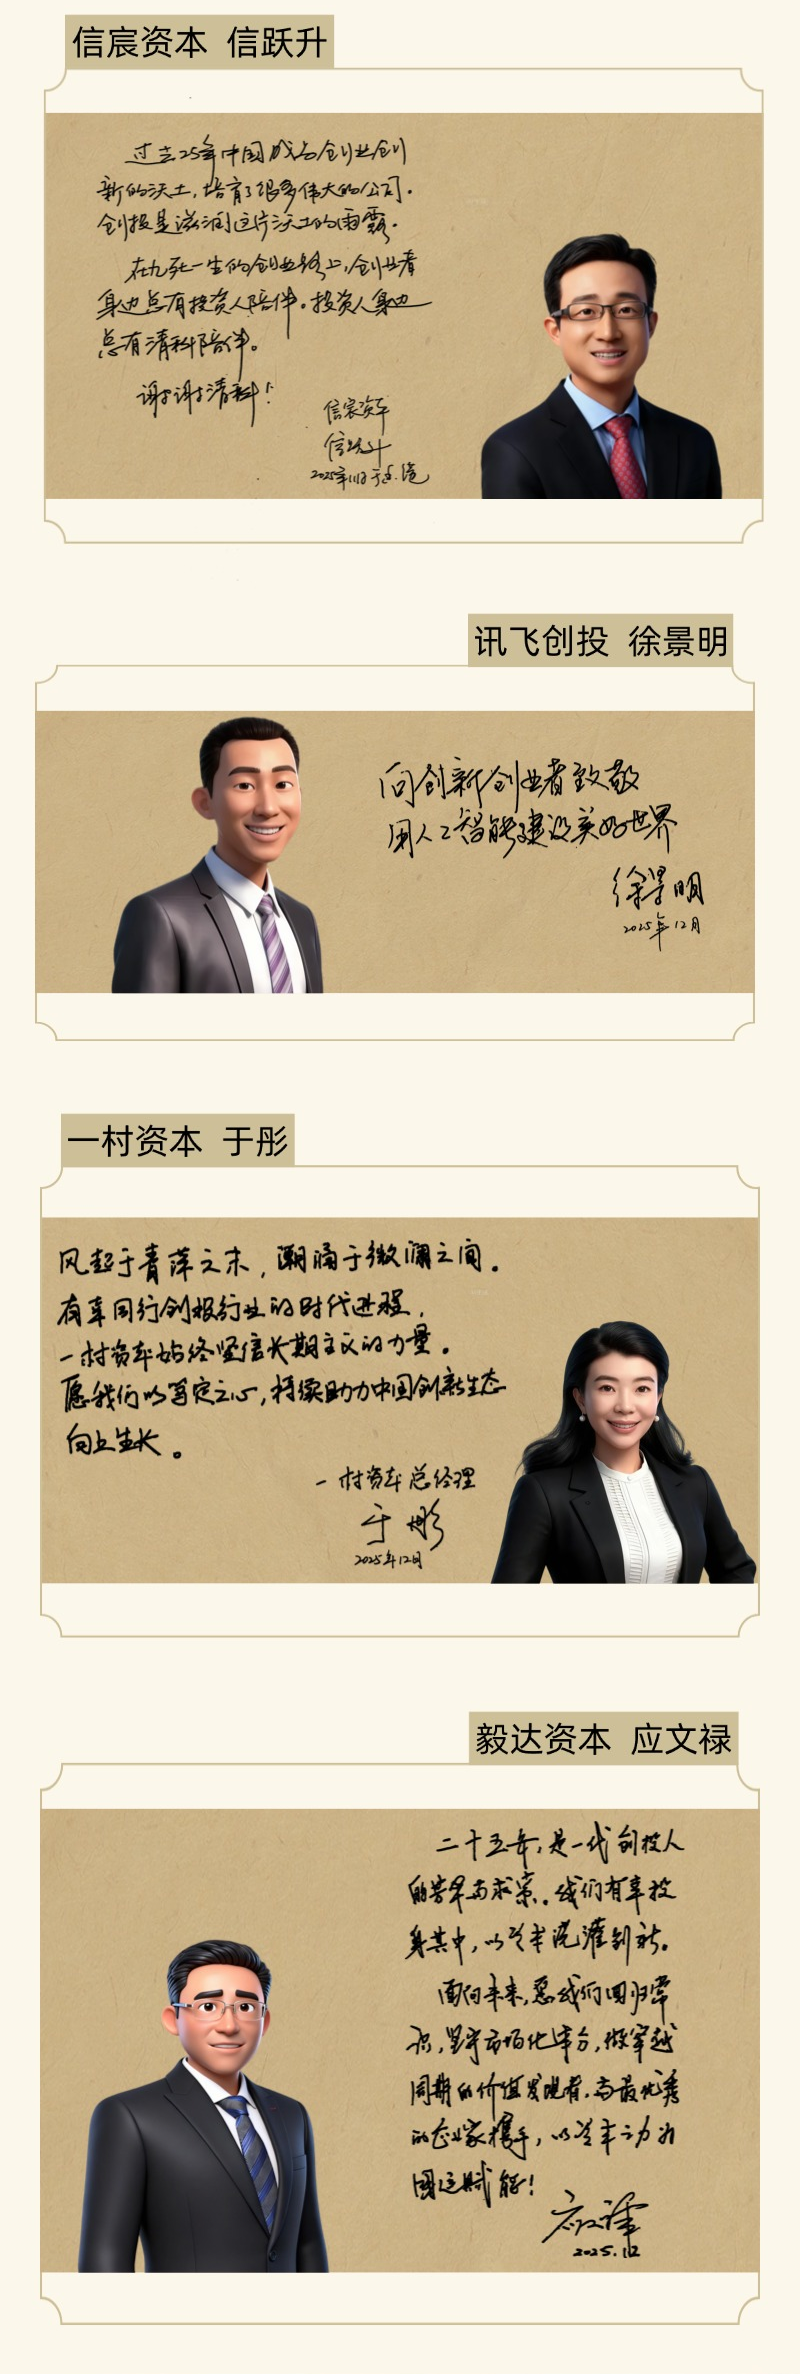 信宸资本 信跃升
过去25年中国成为创业创
新的沃土，培育了很多伟大的公司。
创投是滋润这片沃土的雨露。
在九死一生的创业路上，创业者
身边总有投资人陪伴。投资人身边
总有清科陪伴。
谢谢清科！
信宸资本
信跃升
2025年11月于
讯飞创投 徐景明
向创新创业者致敬
用人工智能建设美好世界
徐景明
2025年12月
一村资本 于彤
风起于青萍之末，潮涌于微澜之间。
有幸同行创投行业的时代进程，
一村资本始终坚信长期主义的力量。
愿我们以笃定之心，持续助力中国创新生态
向上生长。
一村资本 总经理
于彤
2025年12月
毅达资本 应文禄
二十五年，是一代创投人
的苦旱与求索。我们有幸投
身其中，以资本浇灌创新。
面向未来，愿我们回归常
识，坚守市场化本分，做穿越
周期的价值发现者，与最优秀
的企业家携手，以资本之力为
国运赋能！
应文禄
2025.12